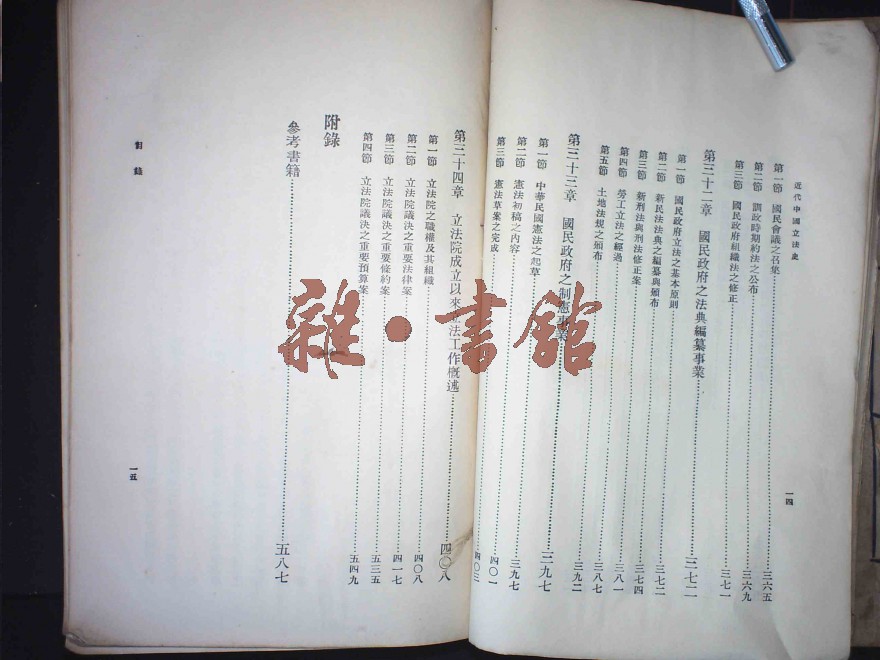 近代中國立法史
第一節 國民會議之召集 三六五
第二節 訓政時期約法之公布 三六九
第三節 國民政府組織法之修正 三七一
第三十二章 國民政府之法典編纂事業 三七二
第一節 國民政府立法之基本原則 三七二
第二節 新民法法典之編纂與頒布 三七二
第三節 新刑法典與刑法修正案 三七四
第四節 勞工立法之經過 三八一
第五節 土地法規之頒布 三八七
第三十三章 國民政府之制憲事業 三九七
第一節 中華民國憲法之起草 三九七
第二節 憲法初稿之內容 四〇一
第三節 憲法草案之完成 四〇三
一四
第三十四章 立法院成立以來立法工作概述 四〇八
第一節 立法院之職權及其組織 四〇八
第二節 立法院議決之重要法律案 四一七
第三節 立法院議決之重要條約案 五三五
第四節 立法院議決之重要預算案 五四九
附錄
參考書籍 五八七
目錄
一五
雜·書館